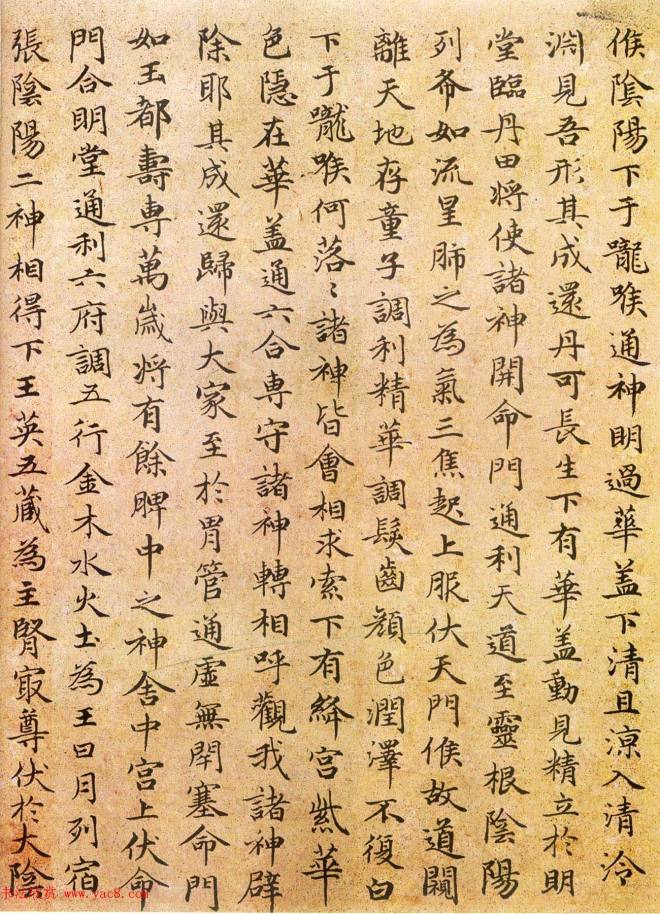 倐陰陽下于嚨喉通神明過華盖下清且涼入清泠
渊見吾形其成還丹可長生下有華盖動見精立於明
堂臨丹田将使諸神開命門通利天道至靈根陰陽
列布如流星肺之為氣三焦起上服伏天門候故道闚
離天地存童子調利精華調髮齒顔色潤澤不復白
下于嚨喉何落〻諸神皆會相求索下有絳宫紫華
色隱在華盖通六合専守諸神轉相呼觀我諸神辟
除耶其成還歸與大家至於胃管通虚無閇塞命門
如玉都壽専萬歲将有餘脾中之神舍中宫上伏命
門合明堂通利六府調五行金木水火土為王日月列宿
張陰陽二神相得下玉英五藏為主腎冣尊伏於大陰
www.yac8.com